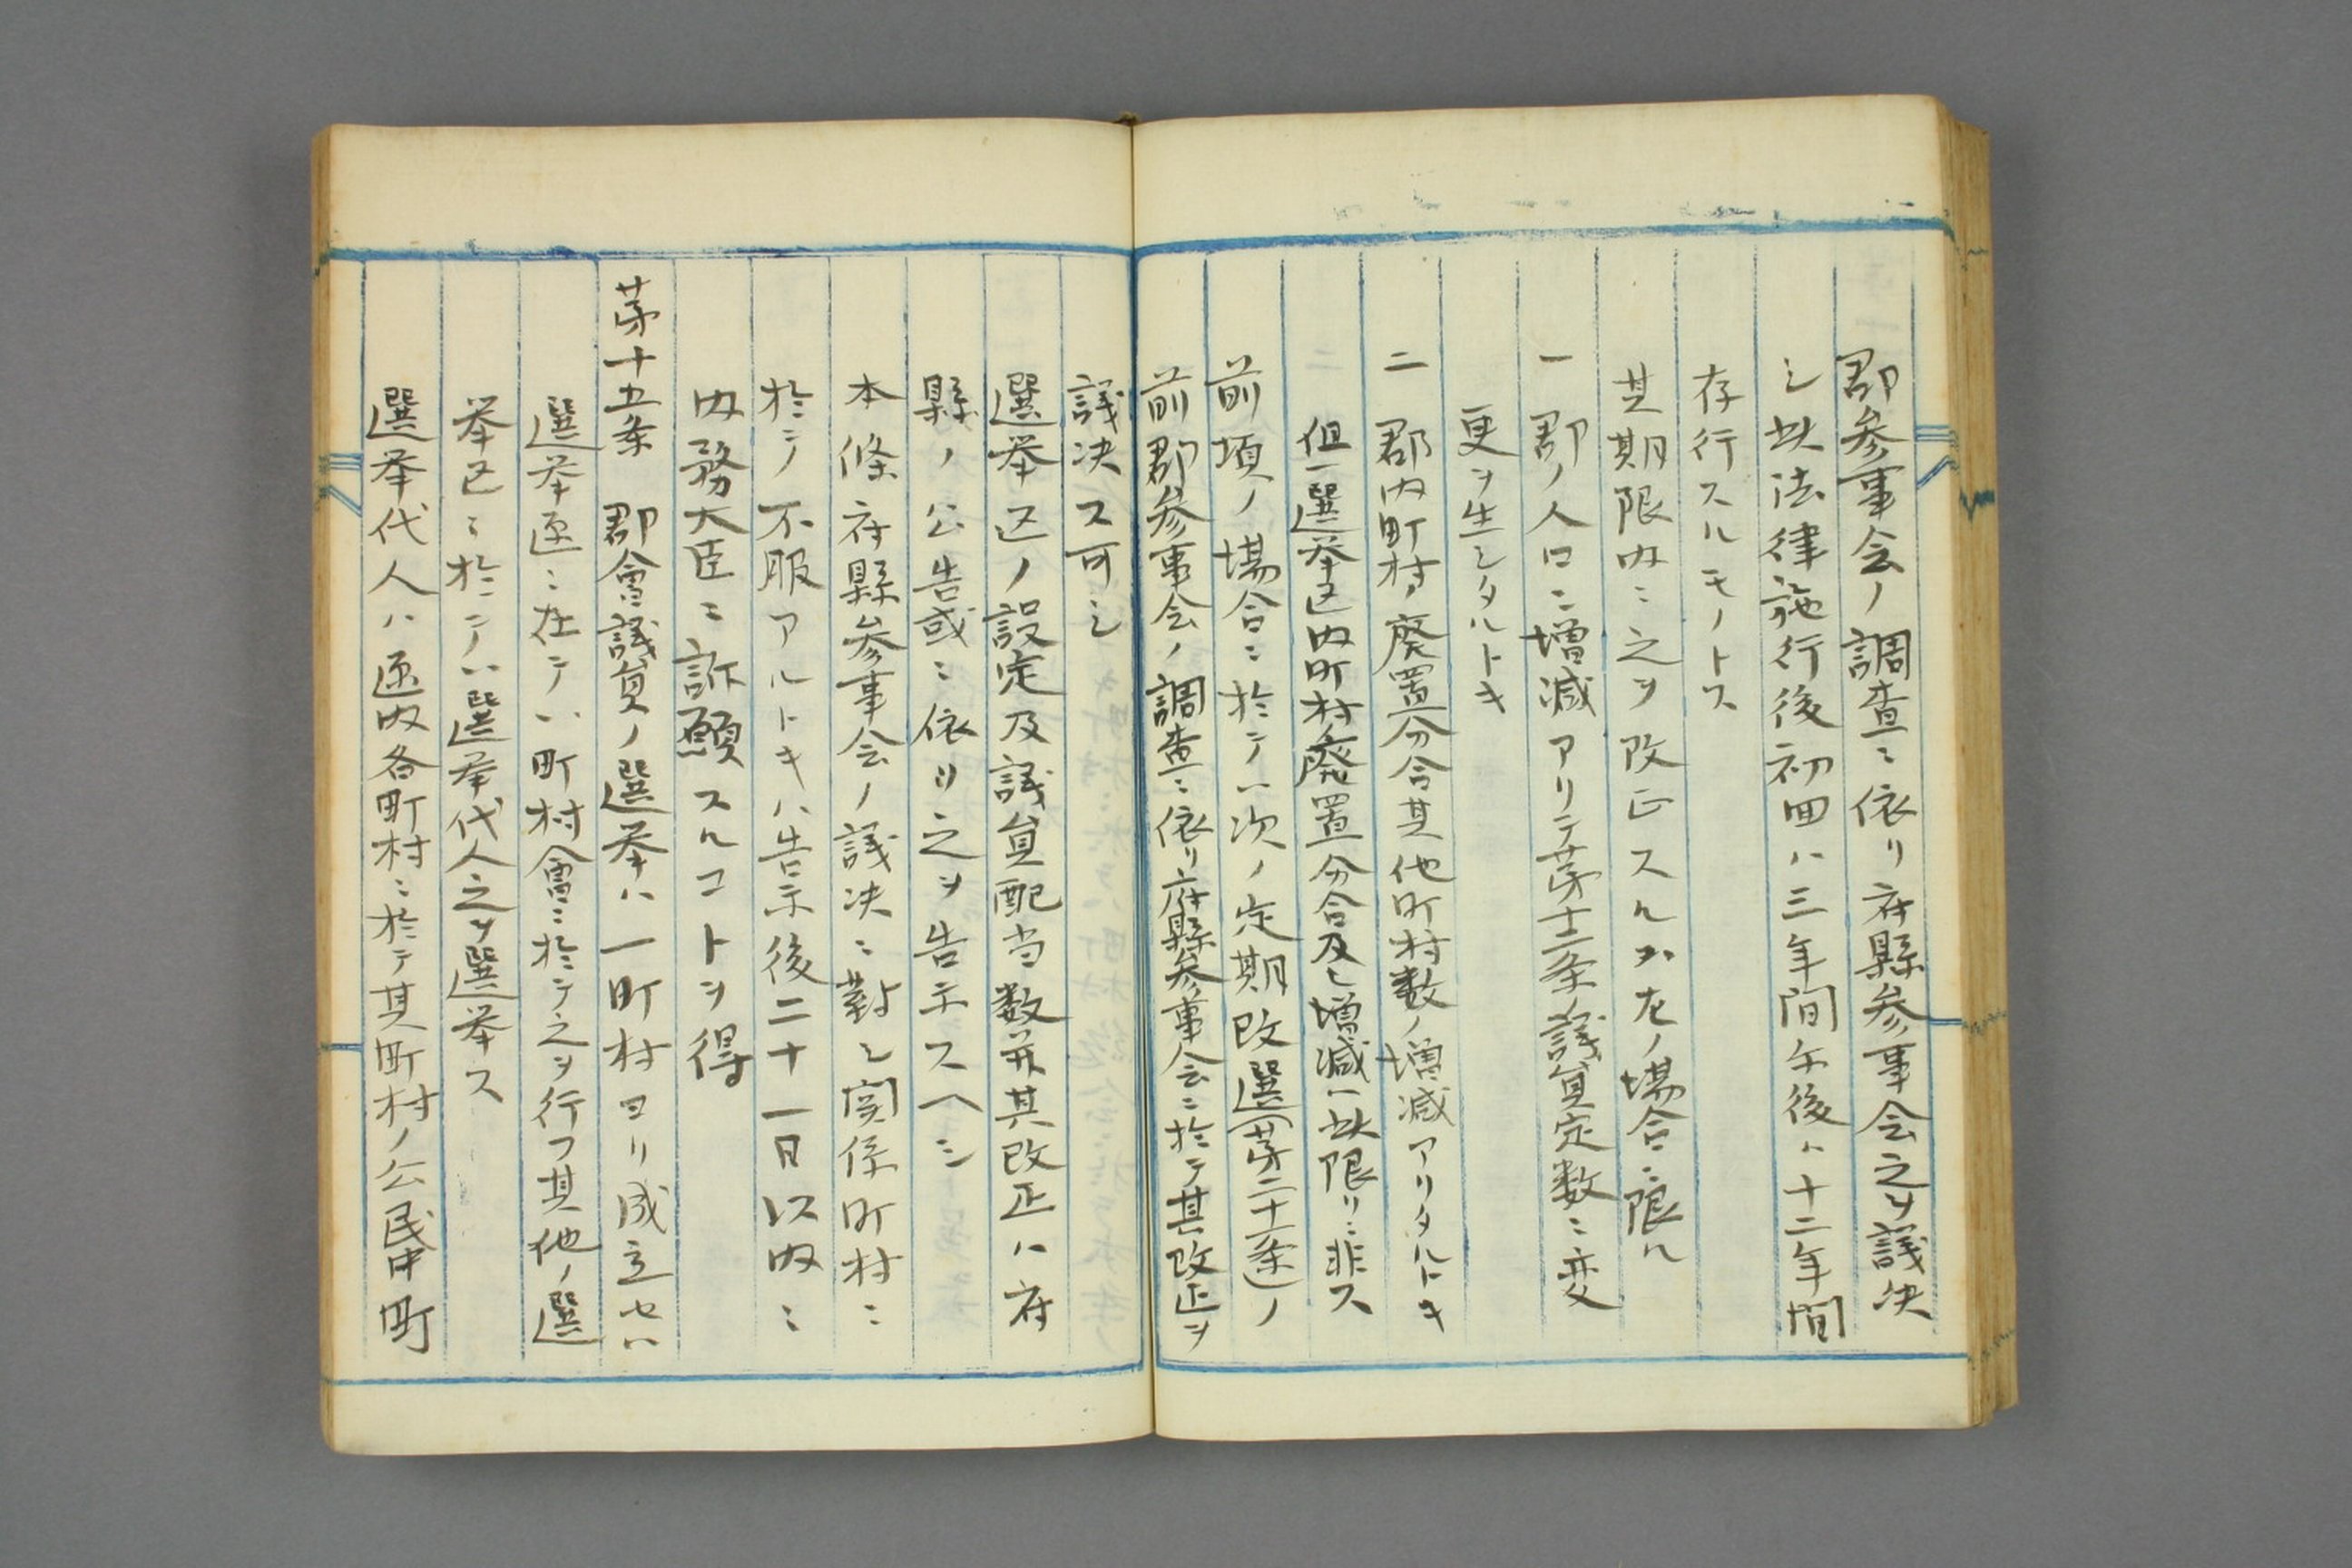 郡参事会ノ調査ニ依リ府縣参事会之ヲ議决
シ此法律施行後初回ハ三年間午後ハ十二年間
存行スルモノトス
其期限内ニ之ヲ改正スルハ左ノ場合ニ限ル
一 郡ノ人口ニ増減アリテ苐十二条ノ議員定数ニ変
更ヲ生シタルトキ
二 郡内町村ノ廃置分合其他町村数ノ増減アリタルトキ
但一選挙区内町村ノ廃置分合及ヒ増減ハ此限リニ非ス
前項ノ場合ニ於テハ次ノ定期改選(苐二十一条)ノ
前郡参事会ノ調査ニ依リ府縣参事会ニ於テ其改正ヲ
議决ス可シ
選挙区ノ設定及議員配当数並其改正ハ府
縣ノ公告或ニ依リ之ヲ告示スヘシ
本條府縣参事会ノ議决ニ對シ関係町村ニ
於テ不服アルトキハ告示後二十一日以内ニ
内務大臣ニ訴願スルコトヲ得
苐十五条 郡會議員ノ選挙ハ一町村ヨリ成立セル
選挙区ニ在テハ町村會ニ於テ之ヲ行フ其他ノ選
挙区ニ於テハ選挙代人之ヲ選挙ス
選挙代人ハ区内各町村ニ於テ其町村ノ公民中町